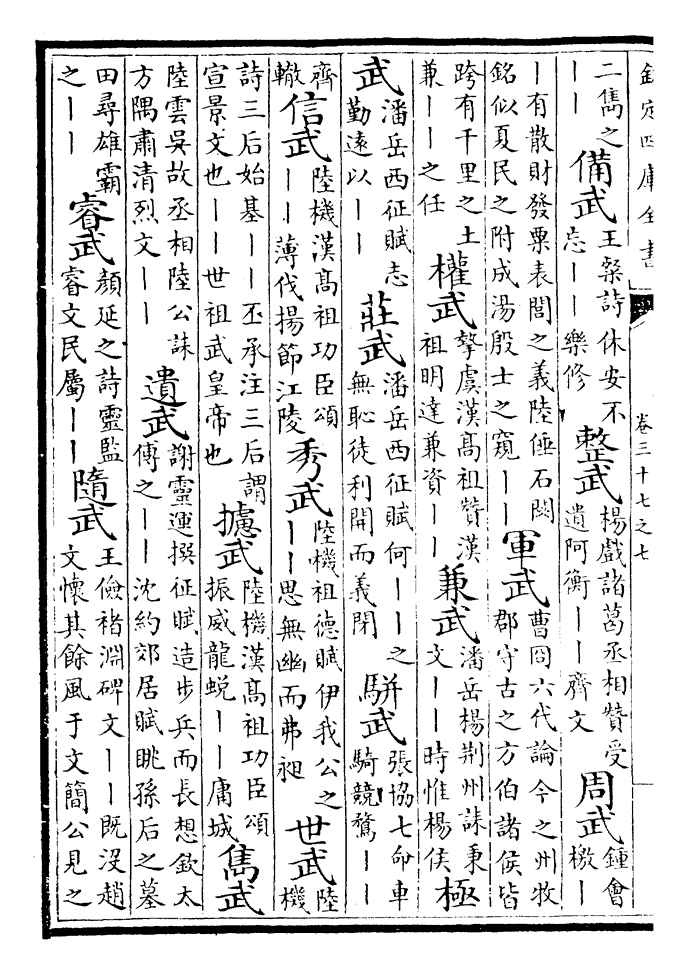 欽定四庫全書
卷三十七之七
二雋之——備武王粲詩休安不忘——樂修整武楊戲諸葛丞相贊受遺阿衡——齊文周武鍾會檄—
—有散財發粟表閭之義陸倕石闕銘似夏民之附成湯殷士之窺——軍武曹冏六代論今之州牧郡守古之方伯諸侯皆
跨有千里之土兼——之任權武摯虞漢髙祖贊漢祖明達兼資——兼武潘岳楊荆州誄秉文——時惟楊侯極
武潘岳西征賦志勤逺以——莊武潘岳西征賦何——之無恥徒利開而義閉駢武張協七命車騎競騖——
齊轍信武陸機漢髙祖功臣頌——薄伐揚節江陵秀武陸機祖德賦伊我公之——思無幽而弗昶世武陸機
詩三后始基——丕承注三后謂宣景文也——世祖武皇帝也攄武陸機漢髙祖功臣頌振威龍蛻——庸城雋武
陸雲吳故丞相陸公誄方隅肅清烈文——遺武謝靈運撰征賦造步兵而長想欽太傅之——沈約郊居賦眺孫后之墓
田尋雄霸之——睿武顏延之詩靈監睿文民屬——隨武王儉褚淵碑文——既沒趙文懷其餘風于文簡公見之